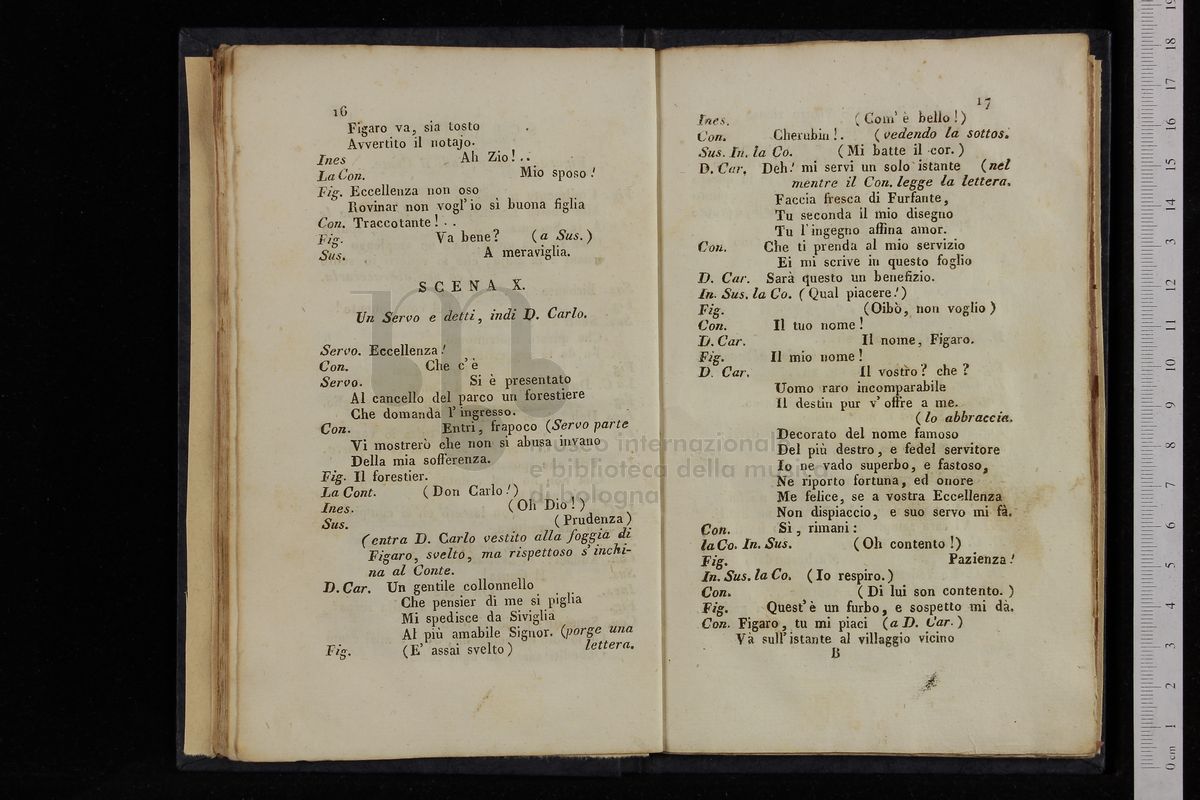 16
Figaro va, sia tosto
Avvertito il notajo.
Ines Ah Zio!..
La Con. Mio sposo!
Fig. Eccellenza non oso
Rovinar non vogl'io sì buona figlia
Con. Traccotante!..
Fig. Va bene? (a Sus.)
Sus. A meraviglia.
SCENA X.
Un Servo e detti, indi D. Carlo.
Servo. Eccellenza!
Con. Che c'è
Servo. Si è presentato
Al cancello del parco un forestiere
Che domanda l'ingresso.
Con. Entri, frapoco (Servo parte
Vi mostrerò che non si abusa invano
Della mia sofferenza.
Fig. Il forestier.
La Cont. (Don Carlo!)
Ines. (Oh Dio!)
Sus. (Prudenza)
(entra D. Carlo vestito alla foggia di
Figaro, svelto, ma rispettoso s'inchi-
na al Conte.
D. Car. Un gentile collonnello
Che pensier di me si piglia
Mi spedisce da Siviglia
Al più amabile Signor. (porge una
Fig. (E' assai svelto) lettera.
17
Ines. (Com'è bello!)
Con. Cherubin!. (vedendo la sottos.
Sus. In. la Co. (Mi batte il cor.)
D. Car. Deh! mi servi un solo istante (nel
mentre il Con. legge la lettera.
Faccia fresca di Furfante,
Tu seconda il mio disegno
Tu l'ingegno affina amor.
Con. Che ti prenda al mio servizio
Ei mi scrive in questo foglio
D. Car. Sarà questo un benefizio.
In. Sus. la Co. (Qual piacere!)
Fig. (Oibò, non voglio)
Con. Il tuo nome!
D. Car. Il nome, Figaro.
Fig. Il mio nome!
D. Car. Il vostro? che?
Uomo raro incomparabile
Il destin pur v'offre a me.
(lo abbraccia.
Decorato del nome famoso
Del più destro, e fedel servitore
Io ne vado superbo, e fastoso,
Ne riporto fortuna, ed onore
Me felice, se a vostra Eccellenza
Non dispiaccio, e suo servo mi fà.
Con. Sì, rimani:
la Co. In. Sus. (Oh contento!)
Fig. Pazienza!
In. Sus. la Co. (Io respiro.)
Con. (Di lui son contento.)
Fig. Quest'è un furbo, e sospetto mi dà.
Con. Figaro, tu mi piaci (a D. Car.)
Và sull'istante al villaggio vicino
B
museo internazionale
e biblioteca della musica
di bologna
0 cm 1 2 3 4 5 6 7 8 9 10 11 12 13 14 15 16 17 18 19